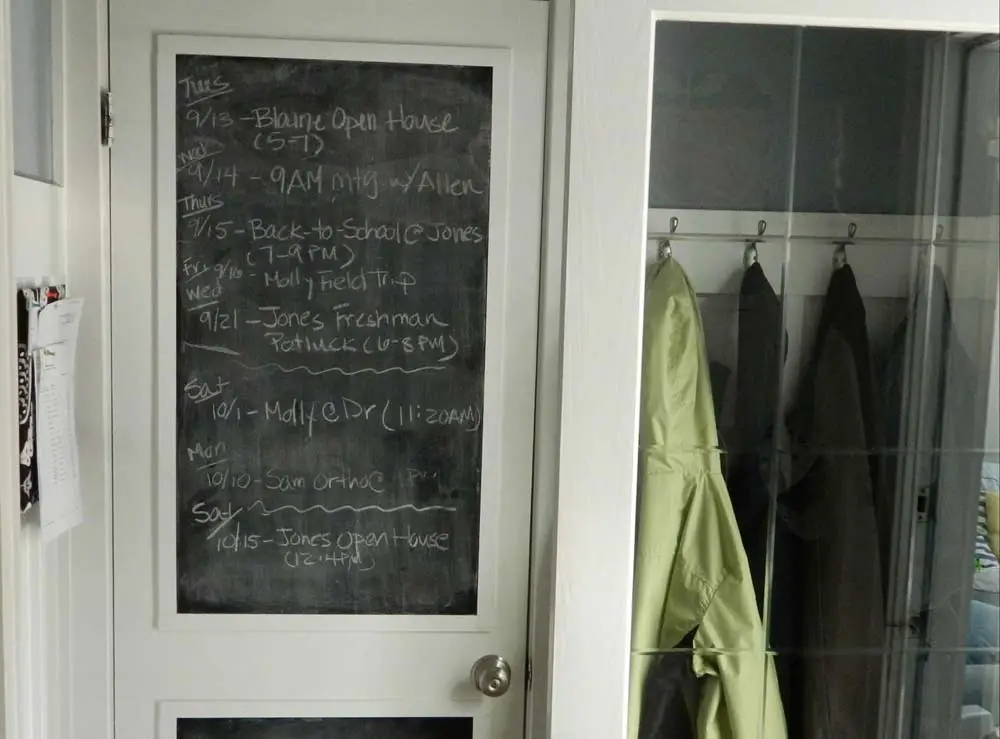 Tues
9/13 - Blaine Open House
(5-7)
Wed
9/14 - 9AM mtg w/ Allen
Thurs
9/15 - Back-to-School @ Jones
(7-9 PM)
Fri 9/16 - Molly Field Trip
Wed
9/21 - Jones Freshman
Potluck (6-8 PM)
Sat
10/1 - Molly @ Dr (11:20AM)
Mon
10/10 - Sam Ortho @
Sat
10/15 - Jones Open House
(12-4PM)